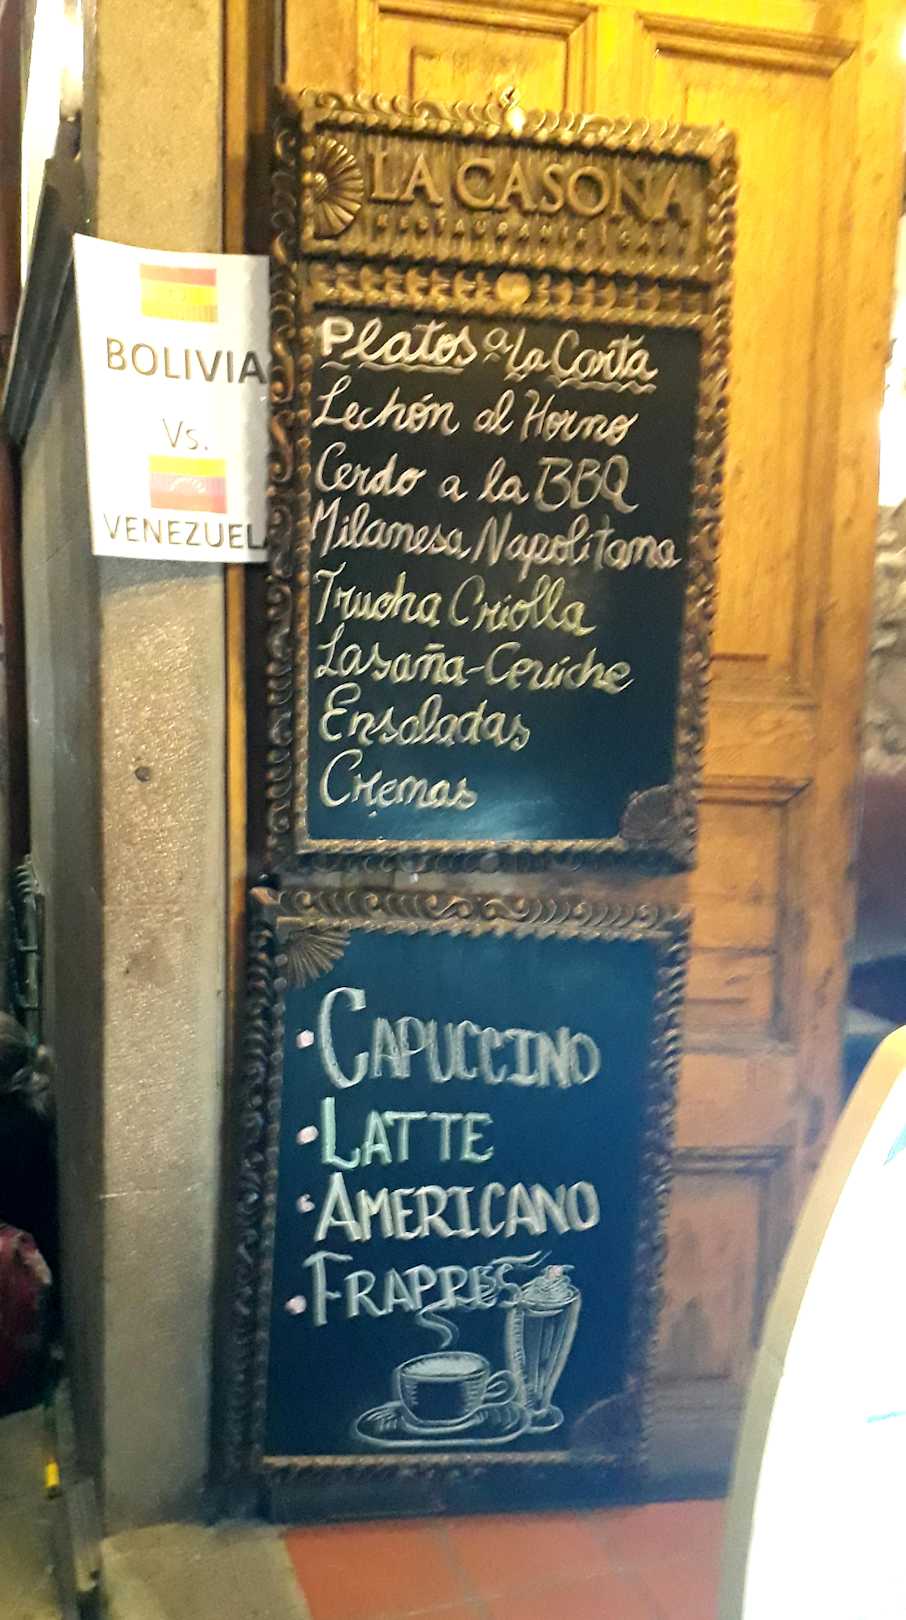 LA CASONA
RESTAURANTE | CAFÉ
BOLIVIA
Vs.
VENEZUEL
Platos a La Carta
Lechón al Horno
Cerdo a la BBQ
Milanesa Napolitana
Trucha Criolla
Lasaña-Ceviche
Ensaladas
Cremas
• CAPUCCINO
• LATTE
• AMERICANO
• FRAPPES